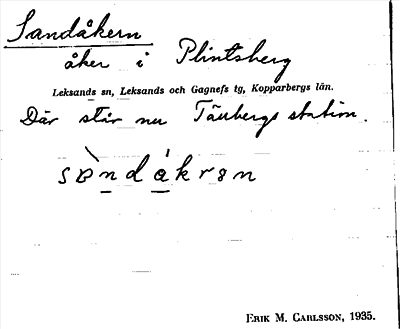 Sandåkern
åker i Plintsberg
Leksands sn, Leksands och Gagnefs tg, Kopparbergs län.
Där står nu Tällbergs station.
ERIK M. CARLSSON, 1935.